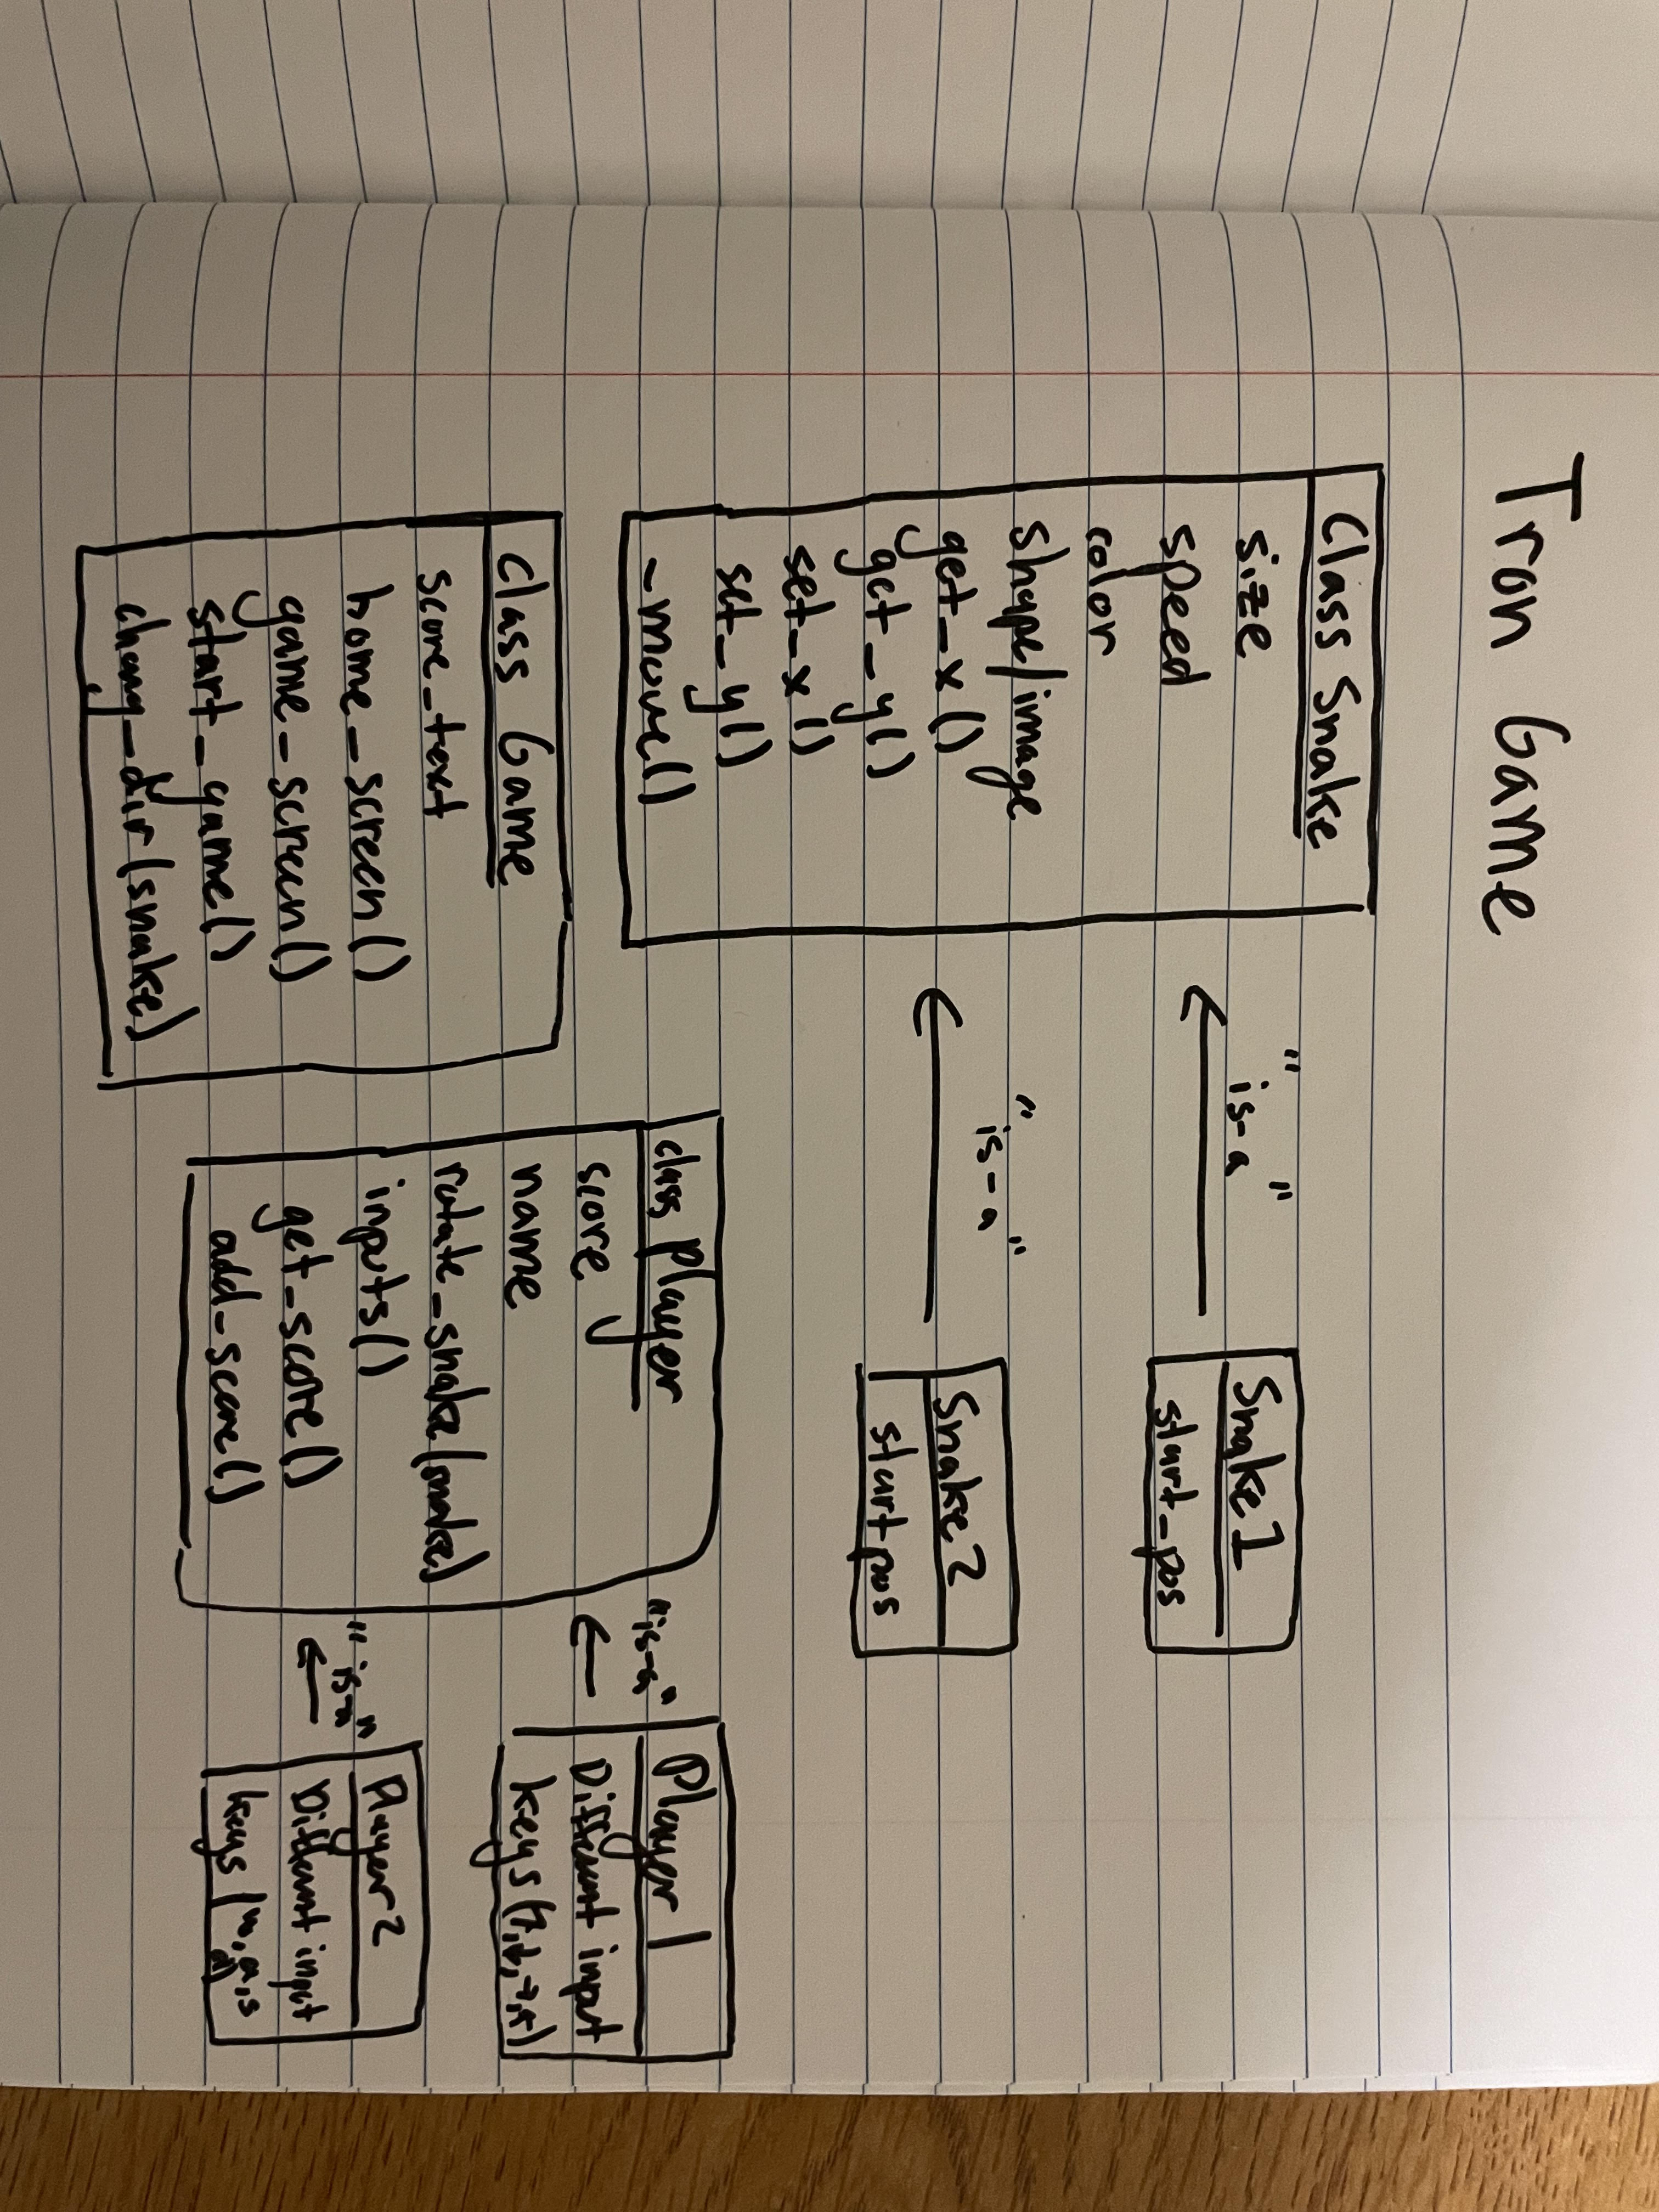 Tron Game
Class Snake
size
speed
color
shape/image
get_x()
get_y()
set_x()
set_y()
-move()
"is-a"
Snake 1
start_pos
"is-a"
Snake 2
start pos
Class Game
score_text
home_screen()
game_screen()
start_game()
chang_dir(snake)
class Player
score
name
rotate_snake(snake)
inputs()
get_score()
add_score()
"is-a"
Player 1
Different input
keys(↑,↓,→,←)
"is-a"
Player 2
Different input
keys (w,a,s
d)